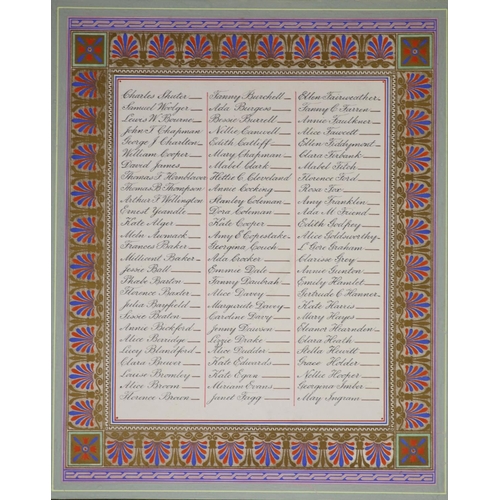 Charles Shuter
Samuel Woolger
Lewis W Bourne
John T Chapman
George J Charlton
William Cooper
David James
Thomas F Humblever
Thomas B Thompson
Arthur F Wellington
Ernest Yeandle
Kate Alger
Mela Aumack
Frances Baker
Millicent Baker
Jesse Ball
Phale Barton
Florence Baxter
Julia Bayfield
Jessie Beaton
Annie Beckford
Alice Berridge
Lucy Blandford
Clara Brewer
Louise Bromley
Alice Broom
Florence Broon
Fanny Burchell
Ada Burgess
Bessie Burrell
Nellie Camwell
Edith Catliff
Mary Chapman
Mabel Clark
Hittie C Cleveland
Annie Cocking
Stanley Coleman
Dora Coleman
Kate Cooper
Amy E Copestake
Georgina Couch
Ada Crocker
Emmie Dale
Fanny Daubrah
Alice Davey
Margarate Davey
Caroline Davy
Jenny Dawson
Lizzie Drake
Alice Dudder
Kate Edwards
Kate Egan
Miriam Evans
Janet Fagg
Ellen Fairweather
Fanny E Farren
Annie Faulkner
Alice Fawcett
Ellen Feddymont
Clara Firbank
Mabel Fitch
Florence Ford
Rosa Fox
Amy Franklin
Ada M Friend
Edith Godfrey
Alice Goldsworthy
L' Gore Graham
Clarisse Grey
Annie Gunton
Emily Hamlet
Gertrude E Hanner
Kate Harris
Mary Hayes
Eleanor Hearnden
Clara Heath
Stella Hewett
Grace Holder
Nellie Hooper
Georgina Imber
May Ingram